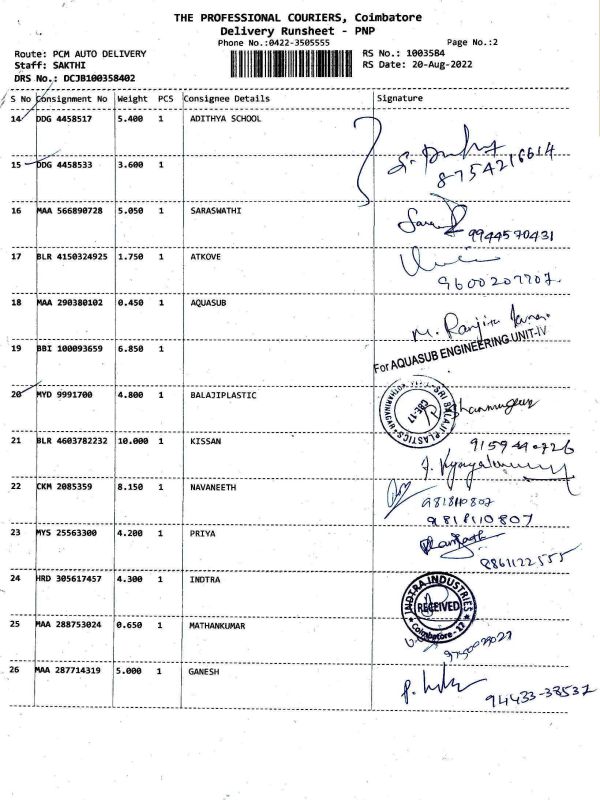 THE PROFESSIONAL COURIERS, Coimbatore
Delivery Runsheet - PNP
Phone No.:0422-3505555
Page No.:2
Route: PCM AUTO DELIVERY
RS No.: 1003584
Staff: SAKTHI
RS Date: 20-Aug-2022
DRS No.: DCJB100358402
S No Consignment No Weight PCS Consignee Details Signature
14 DDG 4458517 5.400 1 ADITHYA SCHOOL
15 DDG 4458533 3.600 1
8754216614
16 MAA 566890728 5.050 1 SARASWATHI
9944570431
17 BLR 4150324925 1.750 1 ATKOVE
9600207707
18 MAA 290380102 0.450 1 AQUASUB
M. Ranjith Kumar
19 BBI 100093659 6.850 1
For AQUASUB ENGINEERING UNIT-IV
20 MYD 9991700 4.800 1 BALAJIPLASTIC
SRI BALAJI PLASTICS
CBE-17
21 BLR 4603782232 10.000 1 KISSAN
22 CKM 2085359 8.150 1 NAVANEETH
9818110807
9818110807
23 MYS 25563300 4.200 1 PRIYA
8861122555
24 HRD 305617457 4.300 1 INDTRA
INDTRA INDUSTRIES
RECEIVED
Coimbatore - 17
25 MAA 288753024 0.650 1 MATHANKUMAR
26 MAA 287714319 5.000 1 GANESH
94433-38537